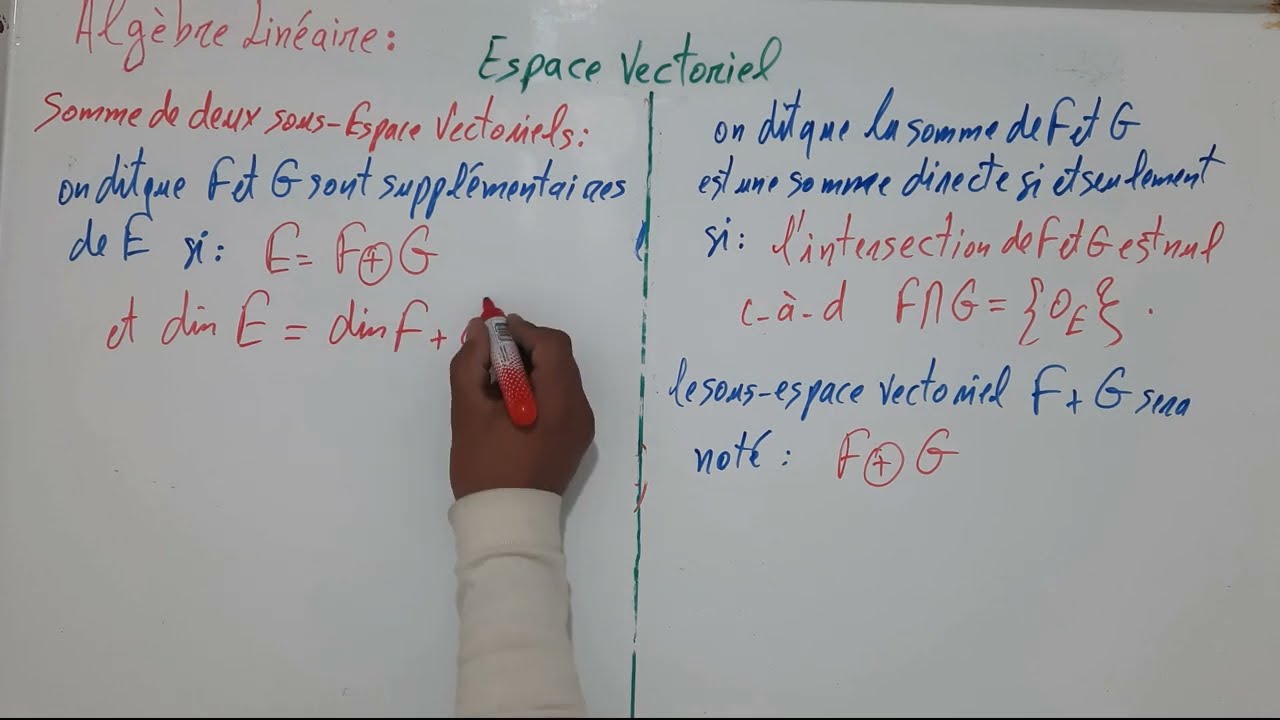 Algèbre Linéaire:
Espace Vectoriel
Somme de deux sous-Espace Vectoriels:
on dit que F et G sont supplémentaires
de E si: E = F ⊕ G
et dim E = dim F +
on dit que la somme de F et G
est une somme directe si et seulement
si: l'intersection de F et G est nul
c-à-d F ∩ G = {0_E}.
le sous-espace vectoriel F + G sera
noté: F ⊕ G